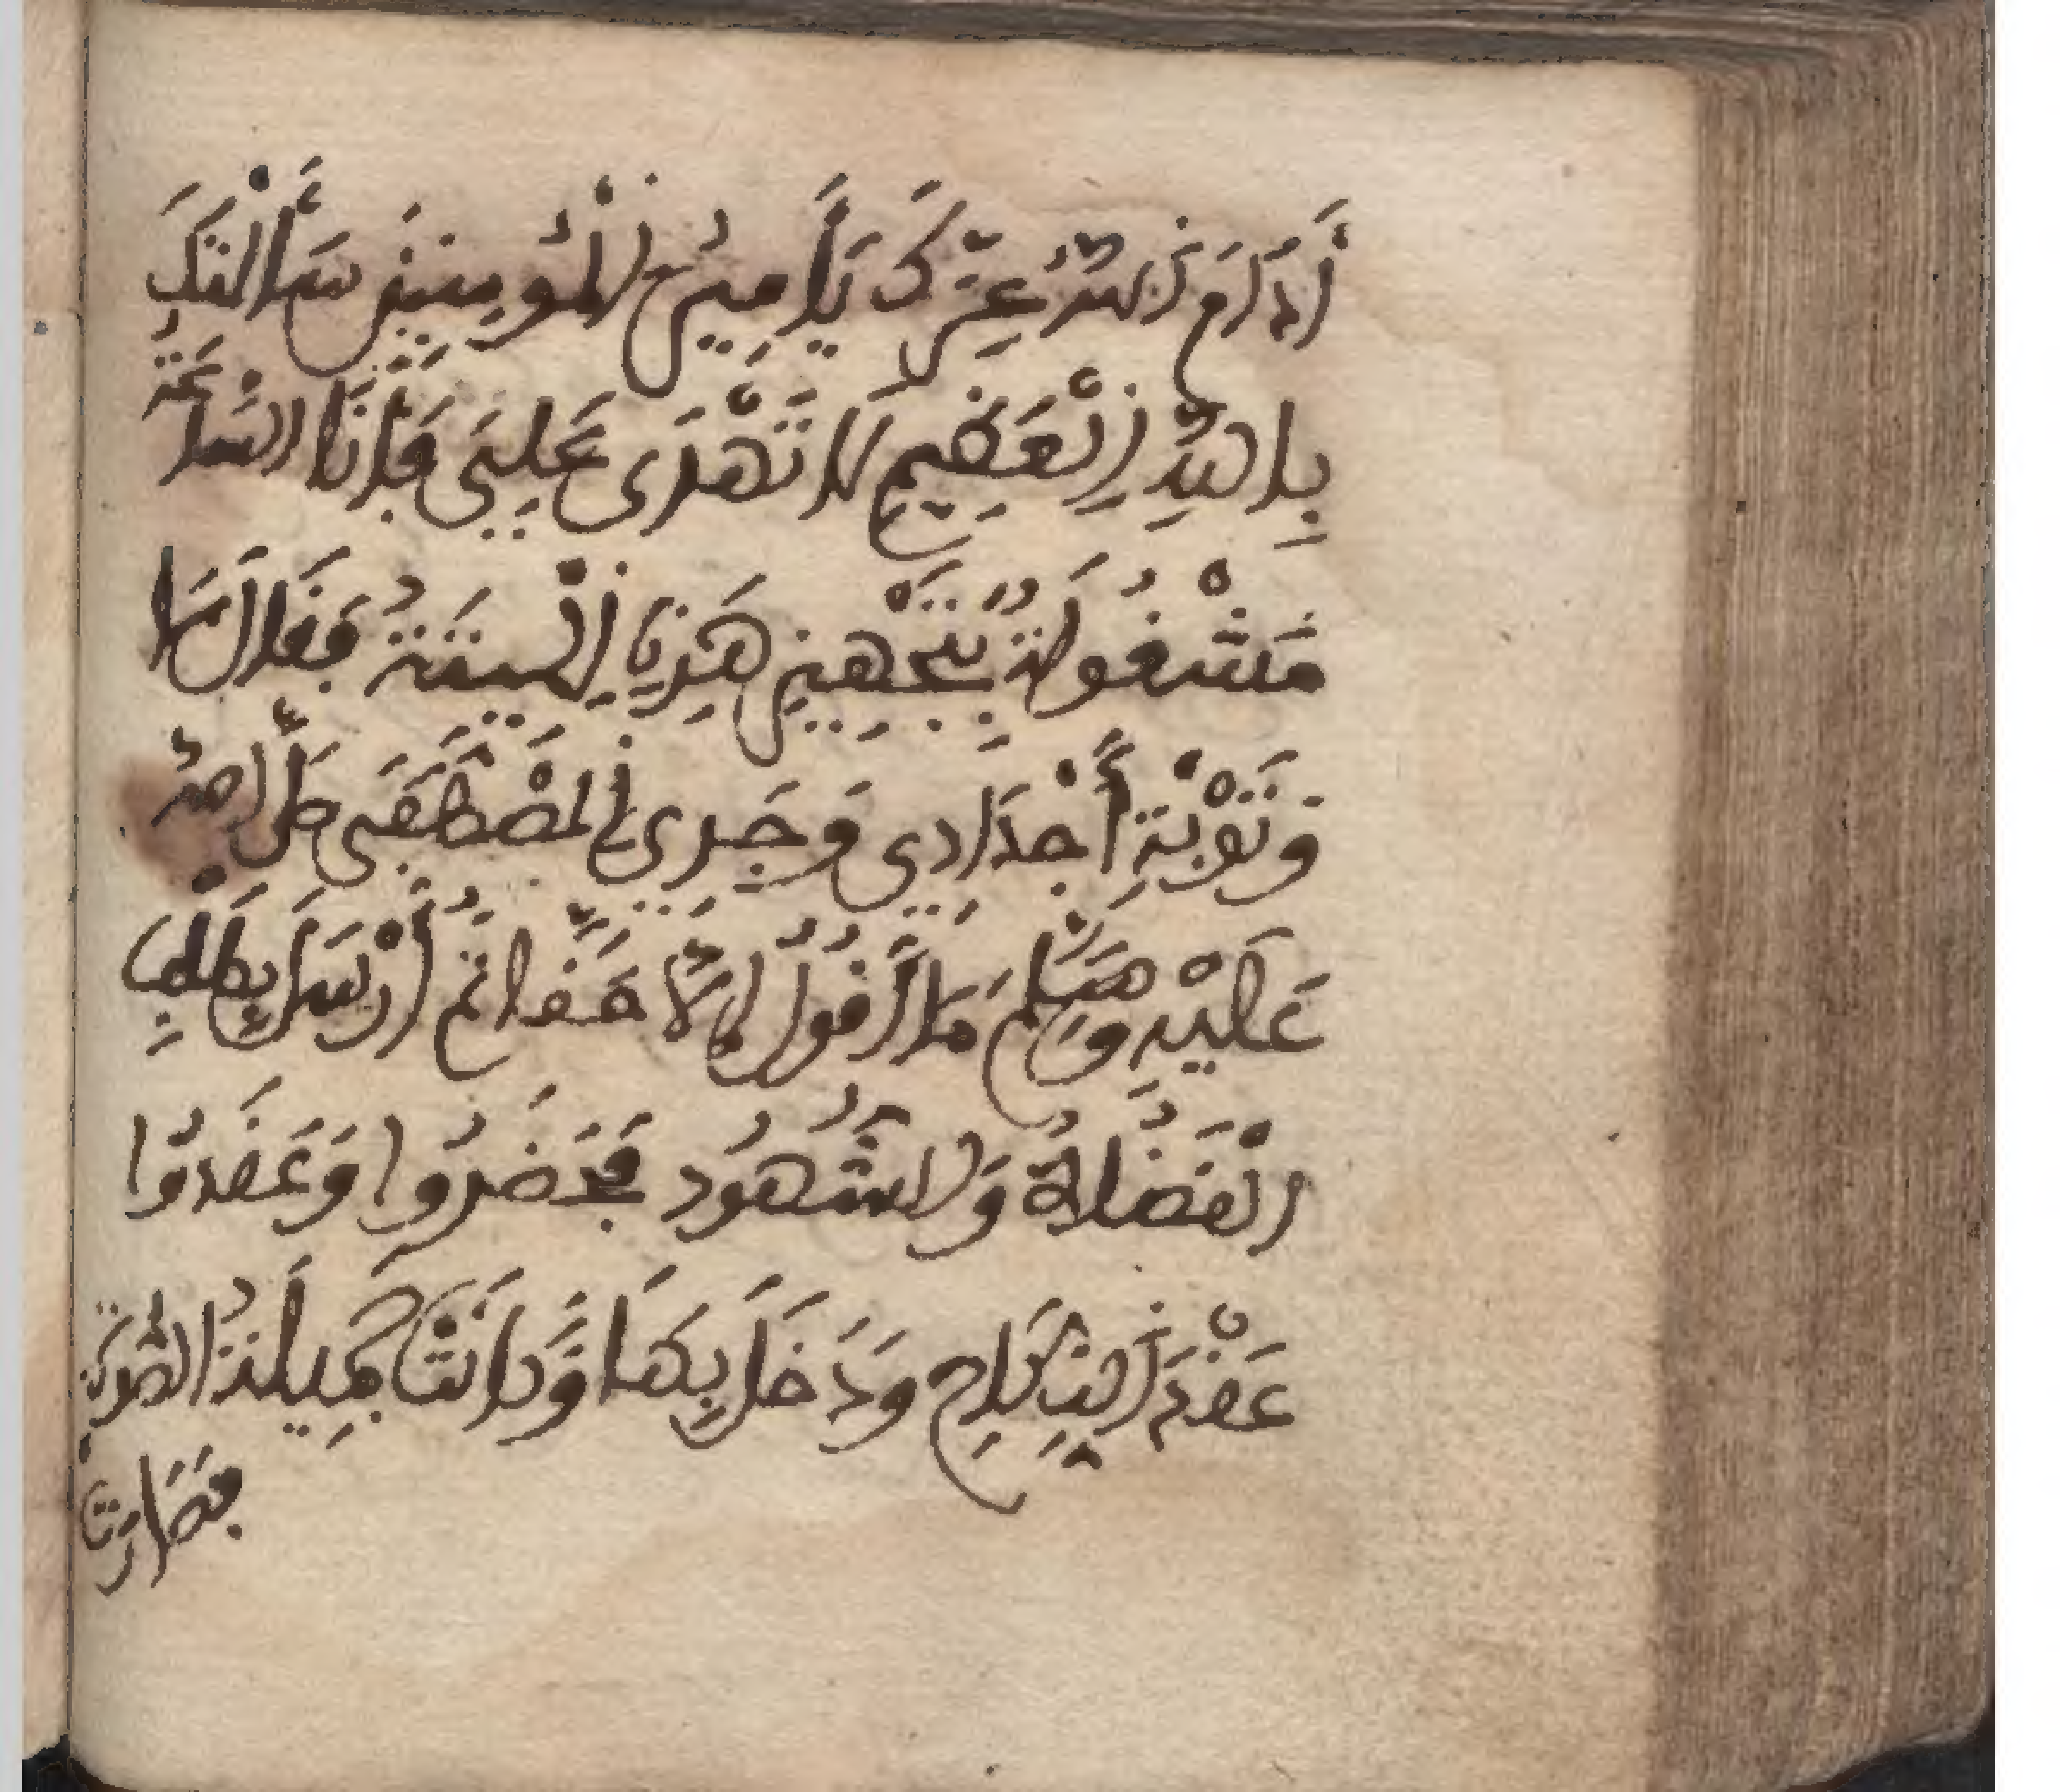 أَدَامَ اللهُ عِزَّكَ يَا أَمِيرَ الْمُؤْمِنِينَ سَأَلْتُكَ
بِاللهِ الْعَظِيمِ لَا تَهْدَى عَلَيَّ فَإِنَّا السَّاعَةَ
مَشْغُولَةٌ بِتَجْهِيزِ هَذِهِ الْمَيِّتَةُ فَقَالَ لَهَا
وَتُوْبَةِ أَجْدَادِي وَجَدِّي الْمُصْطَفَى صَلَّى اللهُ
عَلَيْهِ وَسَلَّمَ مَا أَقُولُ إِلَّا حَقًّا ثُمَّ أَرْسَلَ بِطَلَبِ
الْقُضَاةُ وَالشُّهُود فَحَضَرُوا وَعَقَدُوا
عَقْدَ النِّكَاحِ وَدَخَلَ بِهَا وَكَانَتْ جَمِيلَةُ الصُّورَةِ
فَصَارَتْ